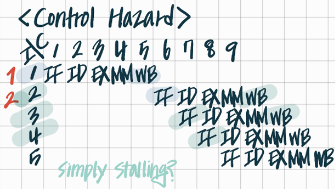 <Control Hazard>
I C 1 2 3 4 5 6 7 8 9
1 1 IF ID EX MM WB
2 2 IF ID EX MM WB
3 IF ID EX MM WB
4 IF ID EX MM WB
5 IF ID EX MM WB
simply stalling?